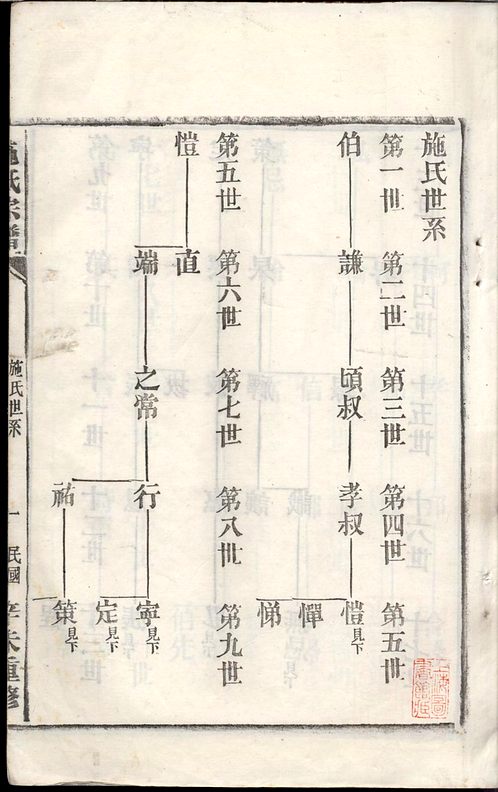 施氏世系
第一世 第二世 第三世 第四世 第五世
伯 謙 頃叔 孝叔 愷見下
憚
悌
第五世 第六世 第七世 第八世 第九世
愷 直
端 之常 行 寧見下
定見下
祐 策見下
施氏宗譜
施氏世系
一
民國辛未重修